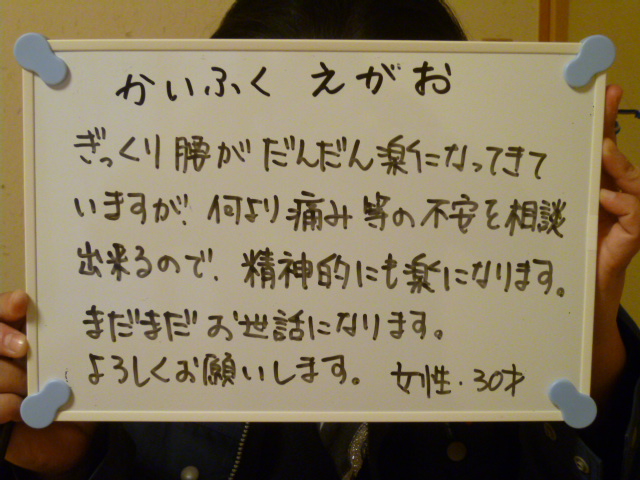 かいふく えがお
ぎっくり腰がだんだん楽になってきて
いますが、何より痛み等の不安を相談
出来るので、精神的にも楽になります。
まだまだお世話になります。
よろしくお願いします。 女性・30才